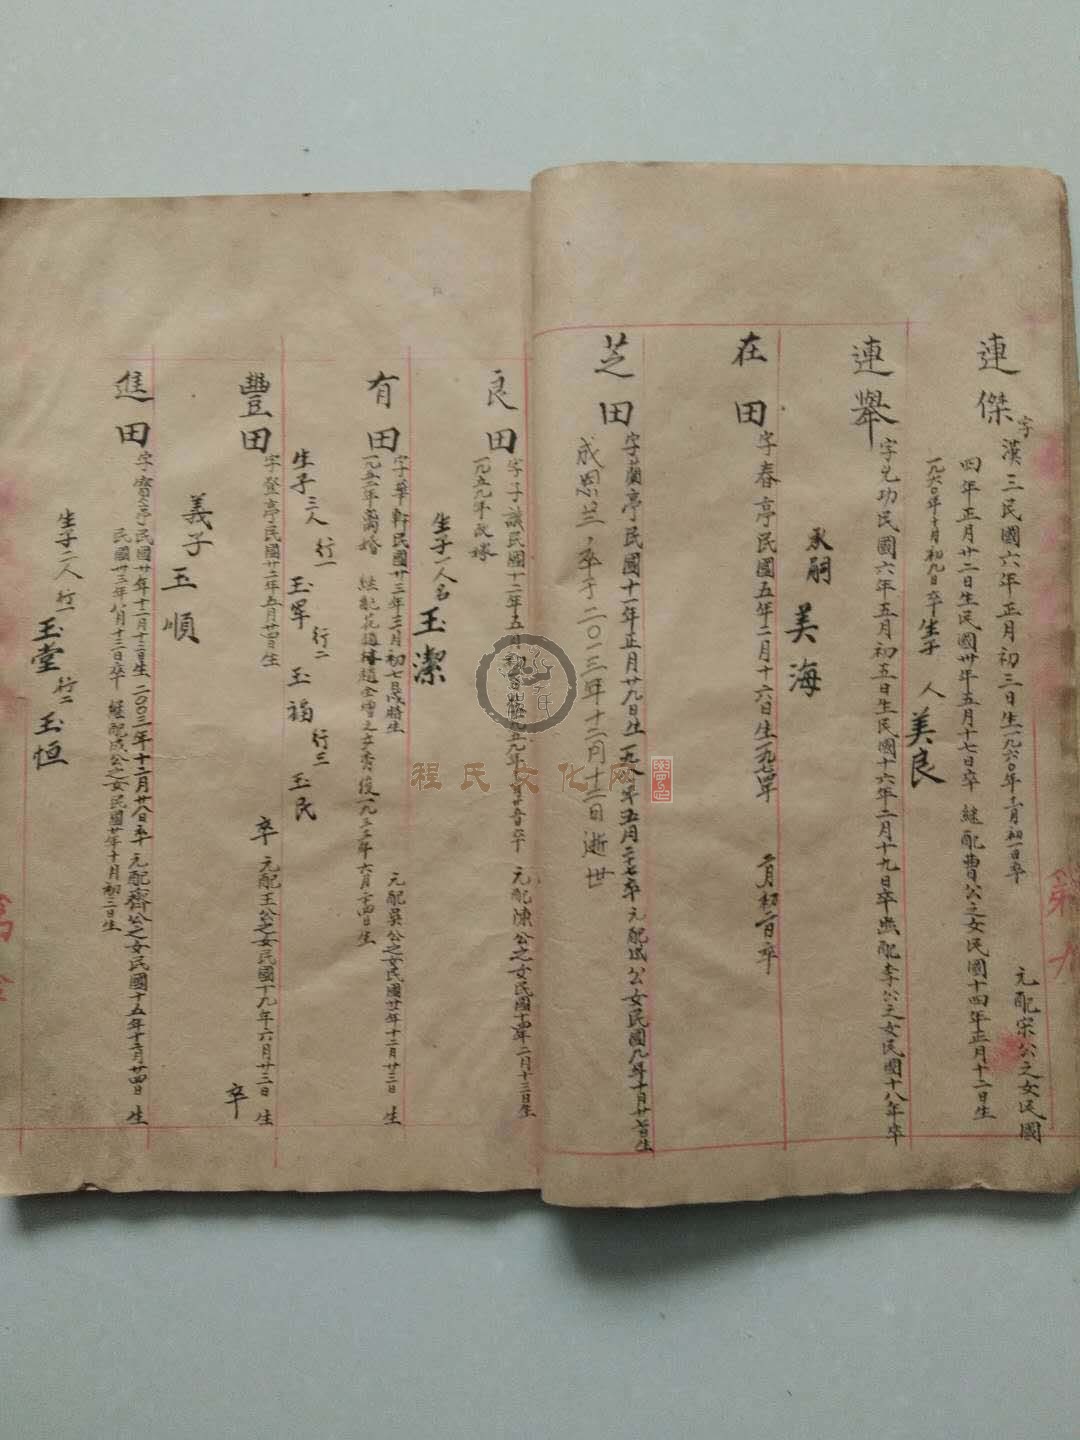 連傑
字漢三民國六年正月初三日生一九六〇年
初一日卒
元配宋公之女民國
四年正月廿二日生民國卅年五月十七日卒 継配曹公之女民國十四年正月十二日生
一九六〇年十月初九日卒 生子 人 美良
連舉
字允功民國六年五月初五日生民國十六年二月十九日卒 配李公之女民國十八年卒
承嗣 美海
在田
字春亭民國五年二月十六日生
二月初二日卒
芝田
字蘭亭民國十一年正月廿九日生
卒 元配成公女民國九年十月廿七日生
成恩兰 卒于二〇一三年十二月十二日逝世
良田
字子謨民國十二年五月初
元配陳公之女民國十四年二月十三日生
一九五九年改嫁
生子一人名 玉潔
有田
字華軒民國廿三年三月初七日戌時生
元配吳公之女民國廿年十二月廿二日生
一九五二年离婚
一九三三年六月十四日生
生子三人 行一 玉罕 行二 玉福 行三 玉民
豐田
字登亭民國廿二年五月廿四日生
卒 元配王公之女民國十九年六月廿三日生
卒
義子 玉順
進田
字寶亭民國廿年十二月十三日生 二〇〇三年十二月廿八日卒 元配齊公之女民國十五年十二月廿四日生
民國卅三年八月十三日卒 継配成公之女民國廿年十月初二日生
生子二人 行一 玉堂 行二 玉恒
程氏文化网